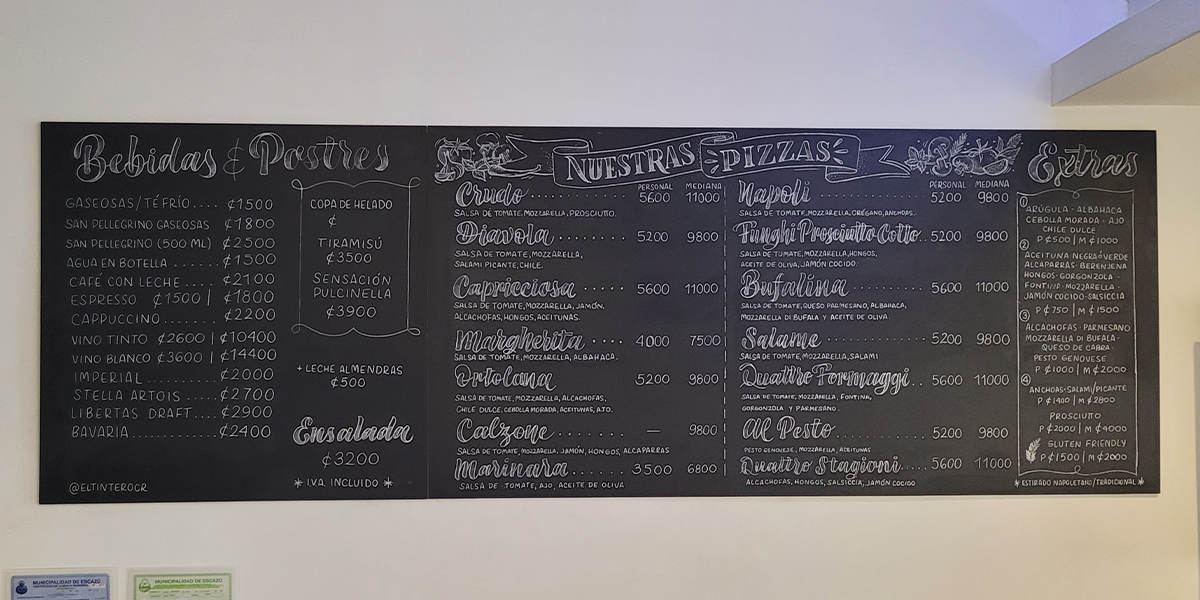 Bebidas & Postres
GASEOSAS/TÉ FRÍO.... ₡1500
SAN PELLEGRINO GASEOSAS ₡1800
SAN PELLEGRINO (500 ML) ₡2500
AGUA EN BOTELLA ...... ₡1500
CAFÉ CON LECHE .... ₡2100
ESPRESSO ₡1500 | ₡1800
CAPPUCCINO....... ₡2200
VINO TINTO ₡2600 | ₡10400
VINO BLANCO ₡3600 | ₡14400
IMPERIAL.......... ₡2000
STELLA ARTOIS .... ₡2700
LIBERTAS DRAFT.... ₡2900
BAVARIA........... ₡2400
@ELTINTEROCR
COPA DE HELADO
₡
TIRAMISÚ
₡3500
SENSACIÓN
PULCINELLA
₡3900
+ LECHE ALMENDRAS
₡500
Ensalada
₡3200
* IVA INCLUIDO *
NUESTRAS PIZZAS
PERSONAL MEDIANA
Crudo 5600 11000
SALSA DE TOMATE, MOZZARELLA, PROSCIUTO.
Diavola 5200 9800
SALSA DE TOMATE, MOZZARELLA,
SALAMI PICANTE, CHILE.
Capricciosa 5600 11000
SALSA DE TOMATE, MOZZARELLA, JAMÓN,
ALCACHOFAS, HONGOS, ACEITUNAS.
Margherita 4000 7500
SALSA DE TOMATE, MOZZARELLA, ALBAHACA.
Ortolana 5200 9800
SALSA DE TOMATE, MOZZARELLA, ALCACHOFAS,
CHILE DULCE, CEBOLLA MORADA, ACEITUNAS, AJO.
Calzone — 9800
SALSA DE TOMATE, MOZZARELLA, JAMÓN, HONGOS, ALCAPARRAS
Marinara 3500 6800
SALSA DE TOMATE, AJO, ACEITE DE OLIVA
PERSONAL MEDIANA
Napoli 5200 9800
SALSA DE TOMATE, MOZZARELLA, ORÉGANO, ANCHOAS.
Funghi Prosciutto Cotto.. 5200 9800
SALSA DE TOMATE, MOZZARELLA, HONGOS,
ACEITE DE OLIVA, JAMÓN COCIDO.
Bufalina 5600 11000
SALSA DE TOMATE, QUESO PARMESANO, ALBAHACA,
MOZZARELLA DI BUFALA Y ACEITE DE OLIVA.
Salame 5200 9800
SALSA DE TOMATE, MOZZARELLA, SALAMI
Quattro Formaggi.. 5600 11000
SALSA DE TOMATE, MOZZARELLA, FONTINA,
GORGONZOLA Y PARMESANO.
Al Pesto 5200 9800
PESTO GENOVESE, MOZZARELLA, ACEITUNAS
Quattro Stagioni.... 5600 11000
ALCACHOFAS, HONGOS, SALSICCIA, JAMÓN COCIDO
Extras
①
ARÚGULA - ALBAHACA
CEBOLLA MORADA - AJO
CHILE DULCE
P ₡500 | M ₡1000
②
ACEITUNA NEGRA ó VERDE
ALCAPARRAS - BERENJENA
HONGOS - GORGONZOLA -
FONTINA - MOZZARELLA -
JAMÓN COCIDO - SALSICCIA
P ₡750 | M ₡1500
③
ALCACHOFAS - PARMESANO
MOZZARELLA DI BUFALA -
QUESO DE CABRA -
PESTO GENOVESE
P ₡1000 | M ₡2000
④
ANCHOAS - SALAMI/PICANTE
P ₡1400 | M ₡2800
PROSCIUTO
P ₡2000 | M ₡4000
GLUTEN FRIENDLY
P ₡1500 | M ₡2000
* ESTIRADO NAPOLETANO/TRADICIONAL *
MUNICIPALIDAD DE ESCAZÚ
MUNICIPALIDAD DE ESCAZÚ